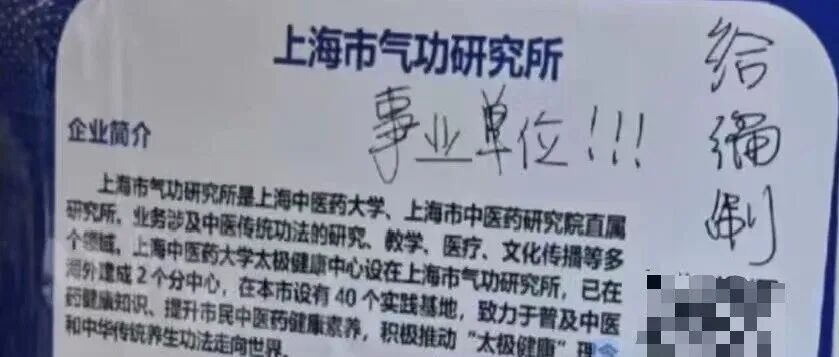 上海市气功研究所
事业单位!!!
给编制
企业简介
上海市气功研究所是上海中医药大学、上海市中医药研究院直属
研究所，业务涉及中医传统功法的研究、教学、医疗、文化传播等多
个领域。上海中医药大学太极健康中心设在上海市气功研究所，已在
海外建成2个分中心，在本市设有40个实践基地，致力于普及中医
药健康知识、提升市民中医药健康素养，积极推动“太极健康”理念
和中华传统养生功法走向世界。